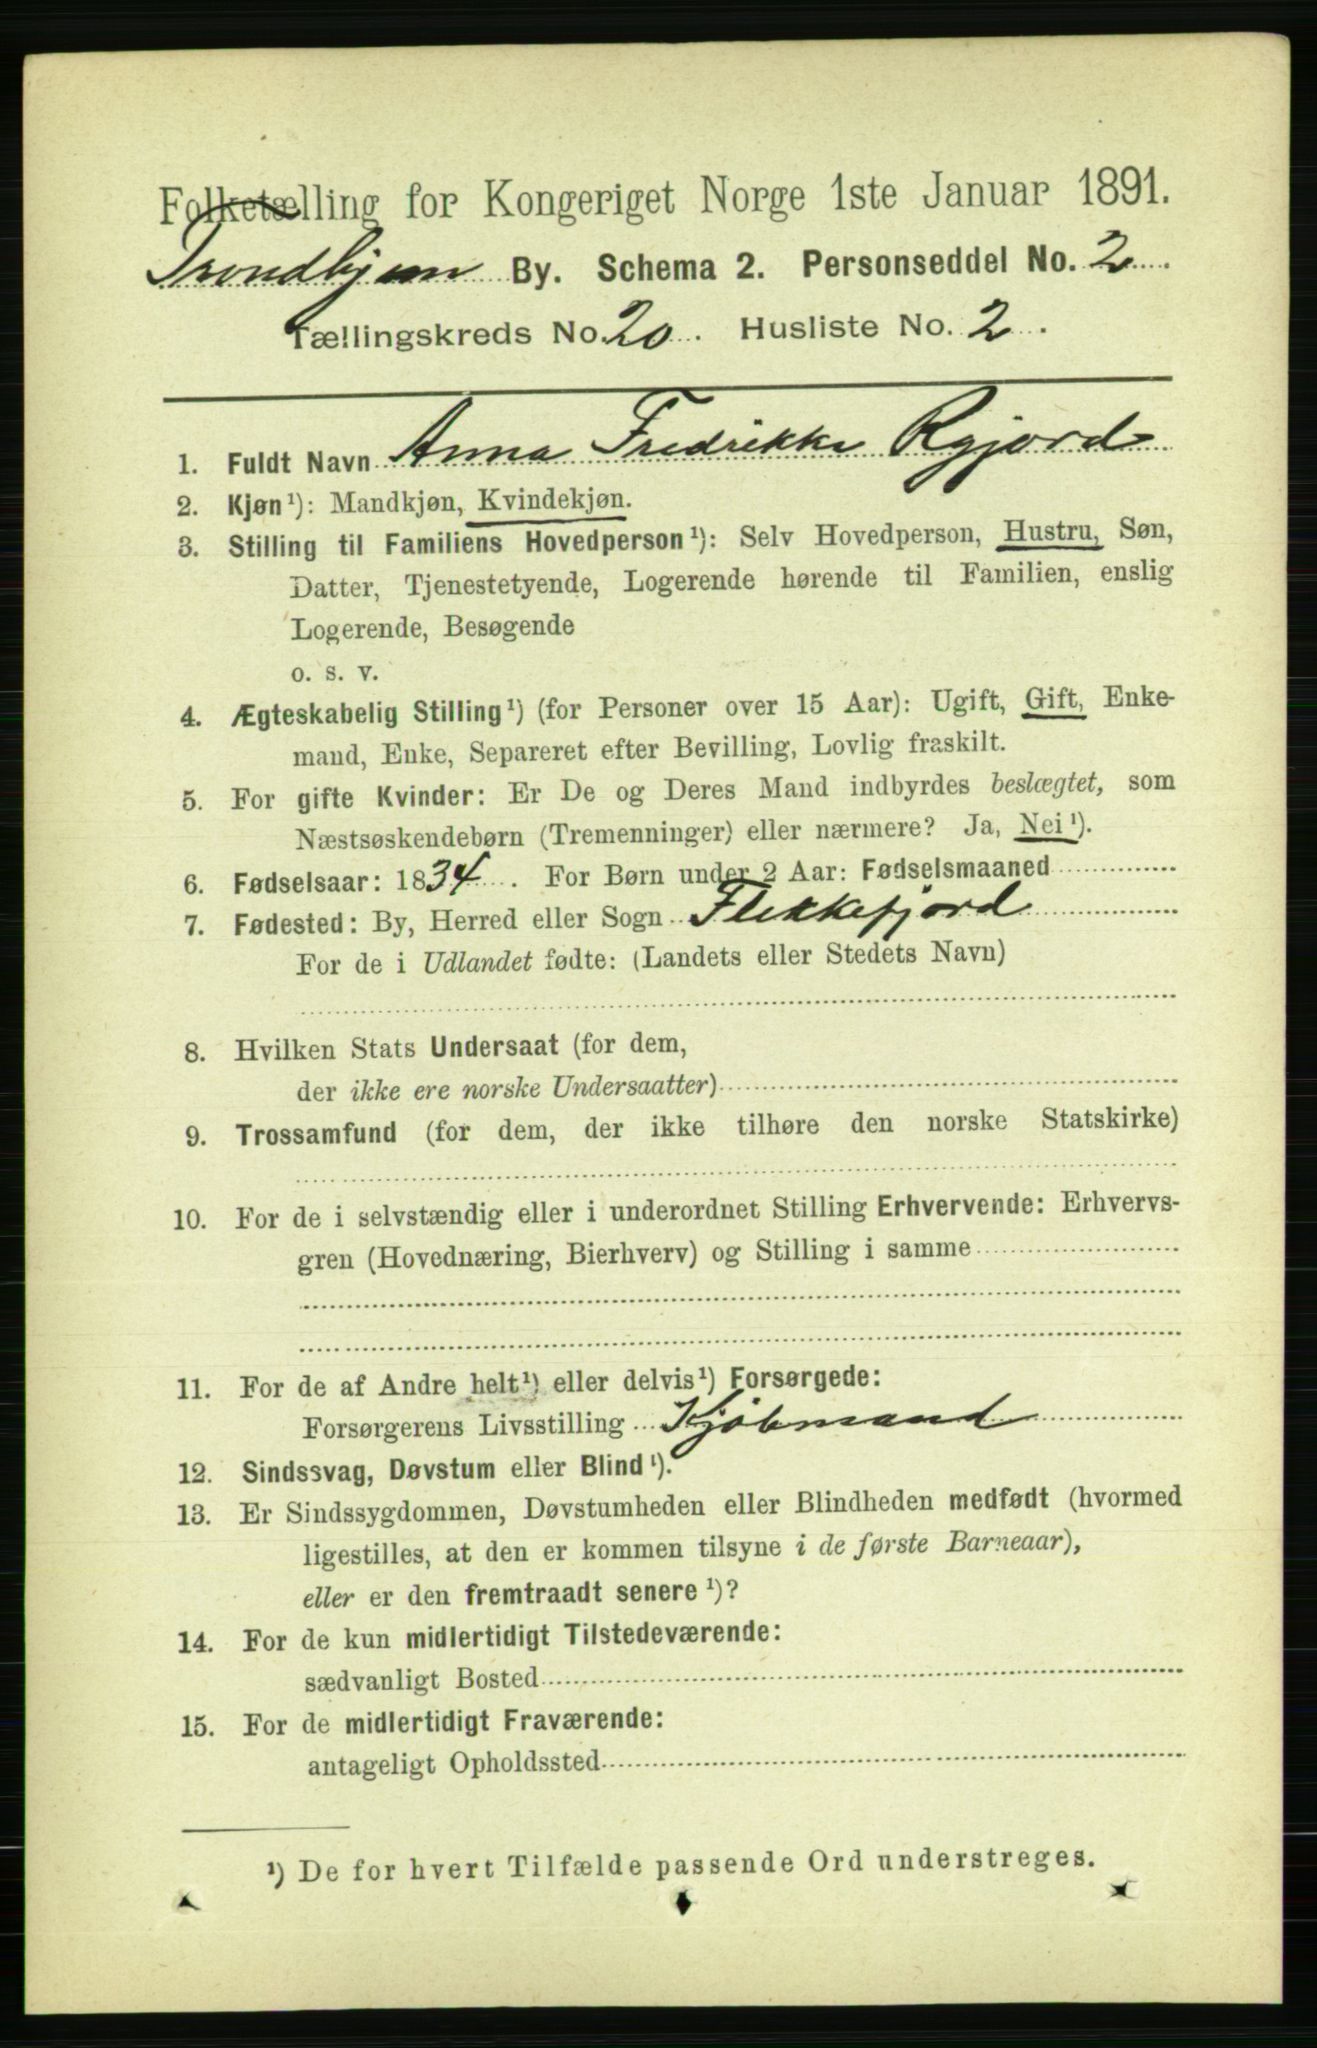 Folketælling for Kongeriget Norge 1ste Januar 1891.
Trondhjem By. Schema 2. Personseddel No. 2
Tællingskreds No. 20. Husliste No. 2.
1. Fuldt Navn Anna Fredrikke Rgjord
2. Kjøn¹): Mandkjøn, Kvindekjøn.
3. Stilling til Familiens Hovedperson¹): Selv Hovedperson, Hustru, Søn,
Datter, Tjenestetyende, Logerende hørende til Familien, enslig
Logerende, Besøgende
o. s. v.
4. Ægteskabelig Stilling¹) (for Personer over 15 Aar): Ugift, Gift, Enke-
mand, Enke, Separeret efter Bevilling, Lovlig fraskilt.
5. For gifte Kvinder: Er De og Deres Mand indbyrdes beslægtet, som
Næstsøskendebørn (Tremenninger) eller nærmere? Ja, Nei¹).
6. Fødselsaar: 1834. For Børn under 2 Aar: Fødselsmaaned
7. Fødested: By, Herred eller Sogn Flekkefjord
For de i Udlandet fødte: (Landets eller Stedets Navn)
8. Hvilken Stats Undersaat (for dem,
der ikke ere norske Undersaatter)
9. Trossamfund (for dem, der ikke tilhøre den norske Statskirke)
10. For de i selvstændig eller i underordnet Stilling Erhvervende: Erhvervs-
gren (Hovednæring, Bierhverv) og Stilling i samme
11. For de af Andre helt¹) eller delvis¹) Forsørgede:
Forsørgerens Livsstilling Kjöbmand
12. Sindssvag, Døvstum eller Blind¹).
13. Er Sindssygdommen, Døvstumheden eller Blindheden medfødt (hvormed
ligestilles, at den er kommen tilsyne i de første Barneaar),
eller er den fremtraadt senere¹)?
14. For de kun midlertidigt Tilstedeværende:
sædvanligt Bosted
15. For de midlertidigt Fraværende:
antageligt Opholdssted
¹) De for hvert Tilfælde passende Ord understreges.